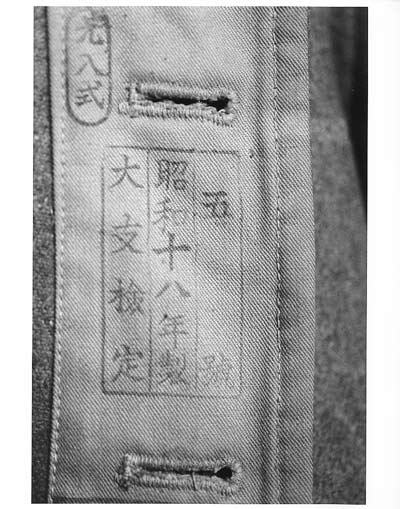 九八式
五號
昭和十八年製
大支檢定